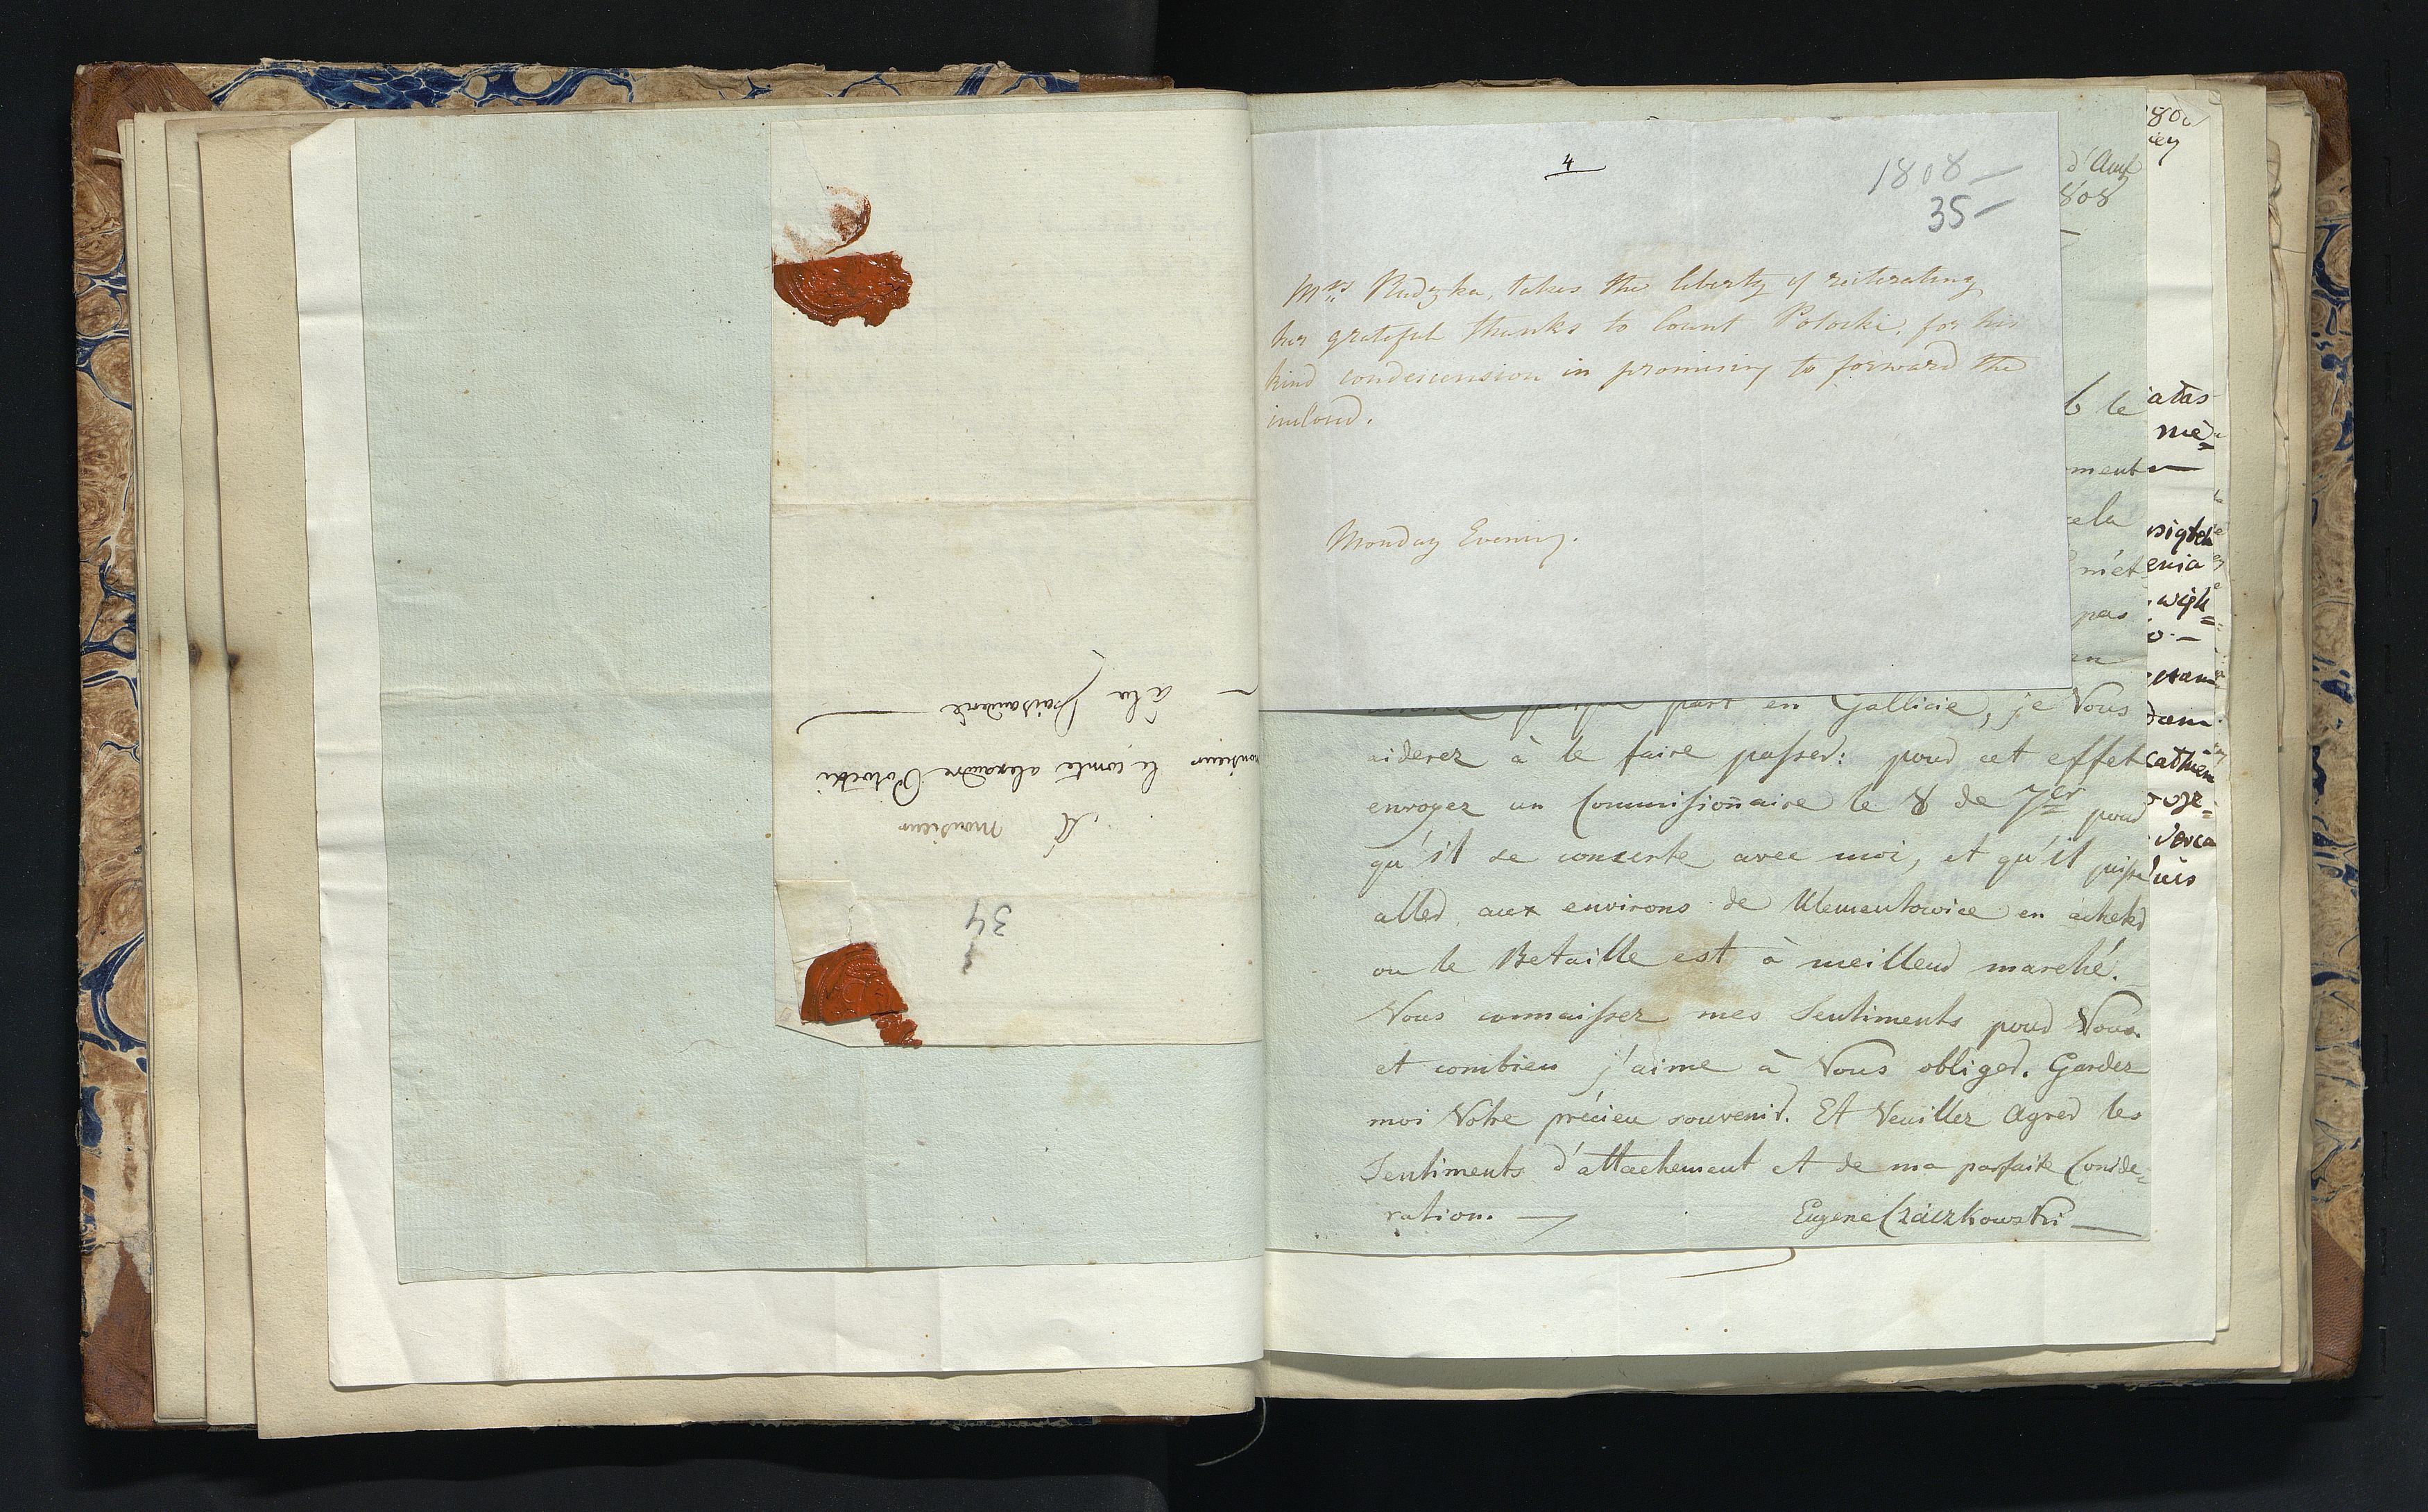 A
Monsieur
monsieur le comte alexandre Potocki
à la faisanderie
34
4
1808 —
35 —
Mrs Rudzka, takes the liberty of reiterating
her grateful thanks to Count Potocki, for his
kind condescension in promising to forward the
inclosed.
Monday Evening.
d'Aout
808
b le
ment
cela
m'et
pas
en
part en Gallicie, je Vous
aiderez à le faire passer: pour cet effet
envoyez un Commissionaire le 8 de 7er pour
qu'il se conserte avec moi, et qu'il puisse
aller aux environs de Klementowice en acheter
ou le Betaille est à meilleur marché.
Vous connaissez mes Sentiments pour Vous
et combien j'aime à Vous obliger. Gardez
moi Votre précieu souvenir. Et Veuillez Agreer les
Sentiments d'attachement et de ma parfaite Conside=
ration. — Eugene Czáczkowski
atas
mė
enia
więk=
dam